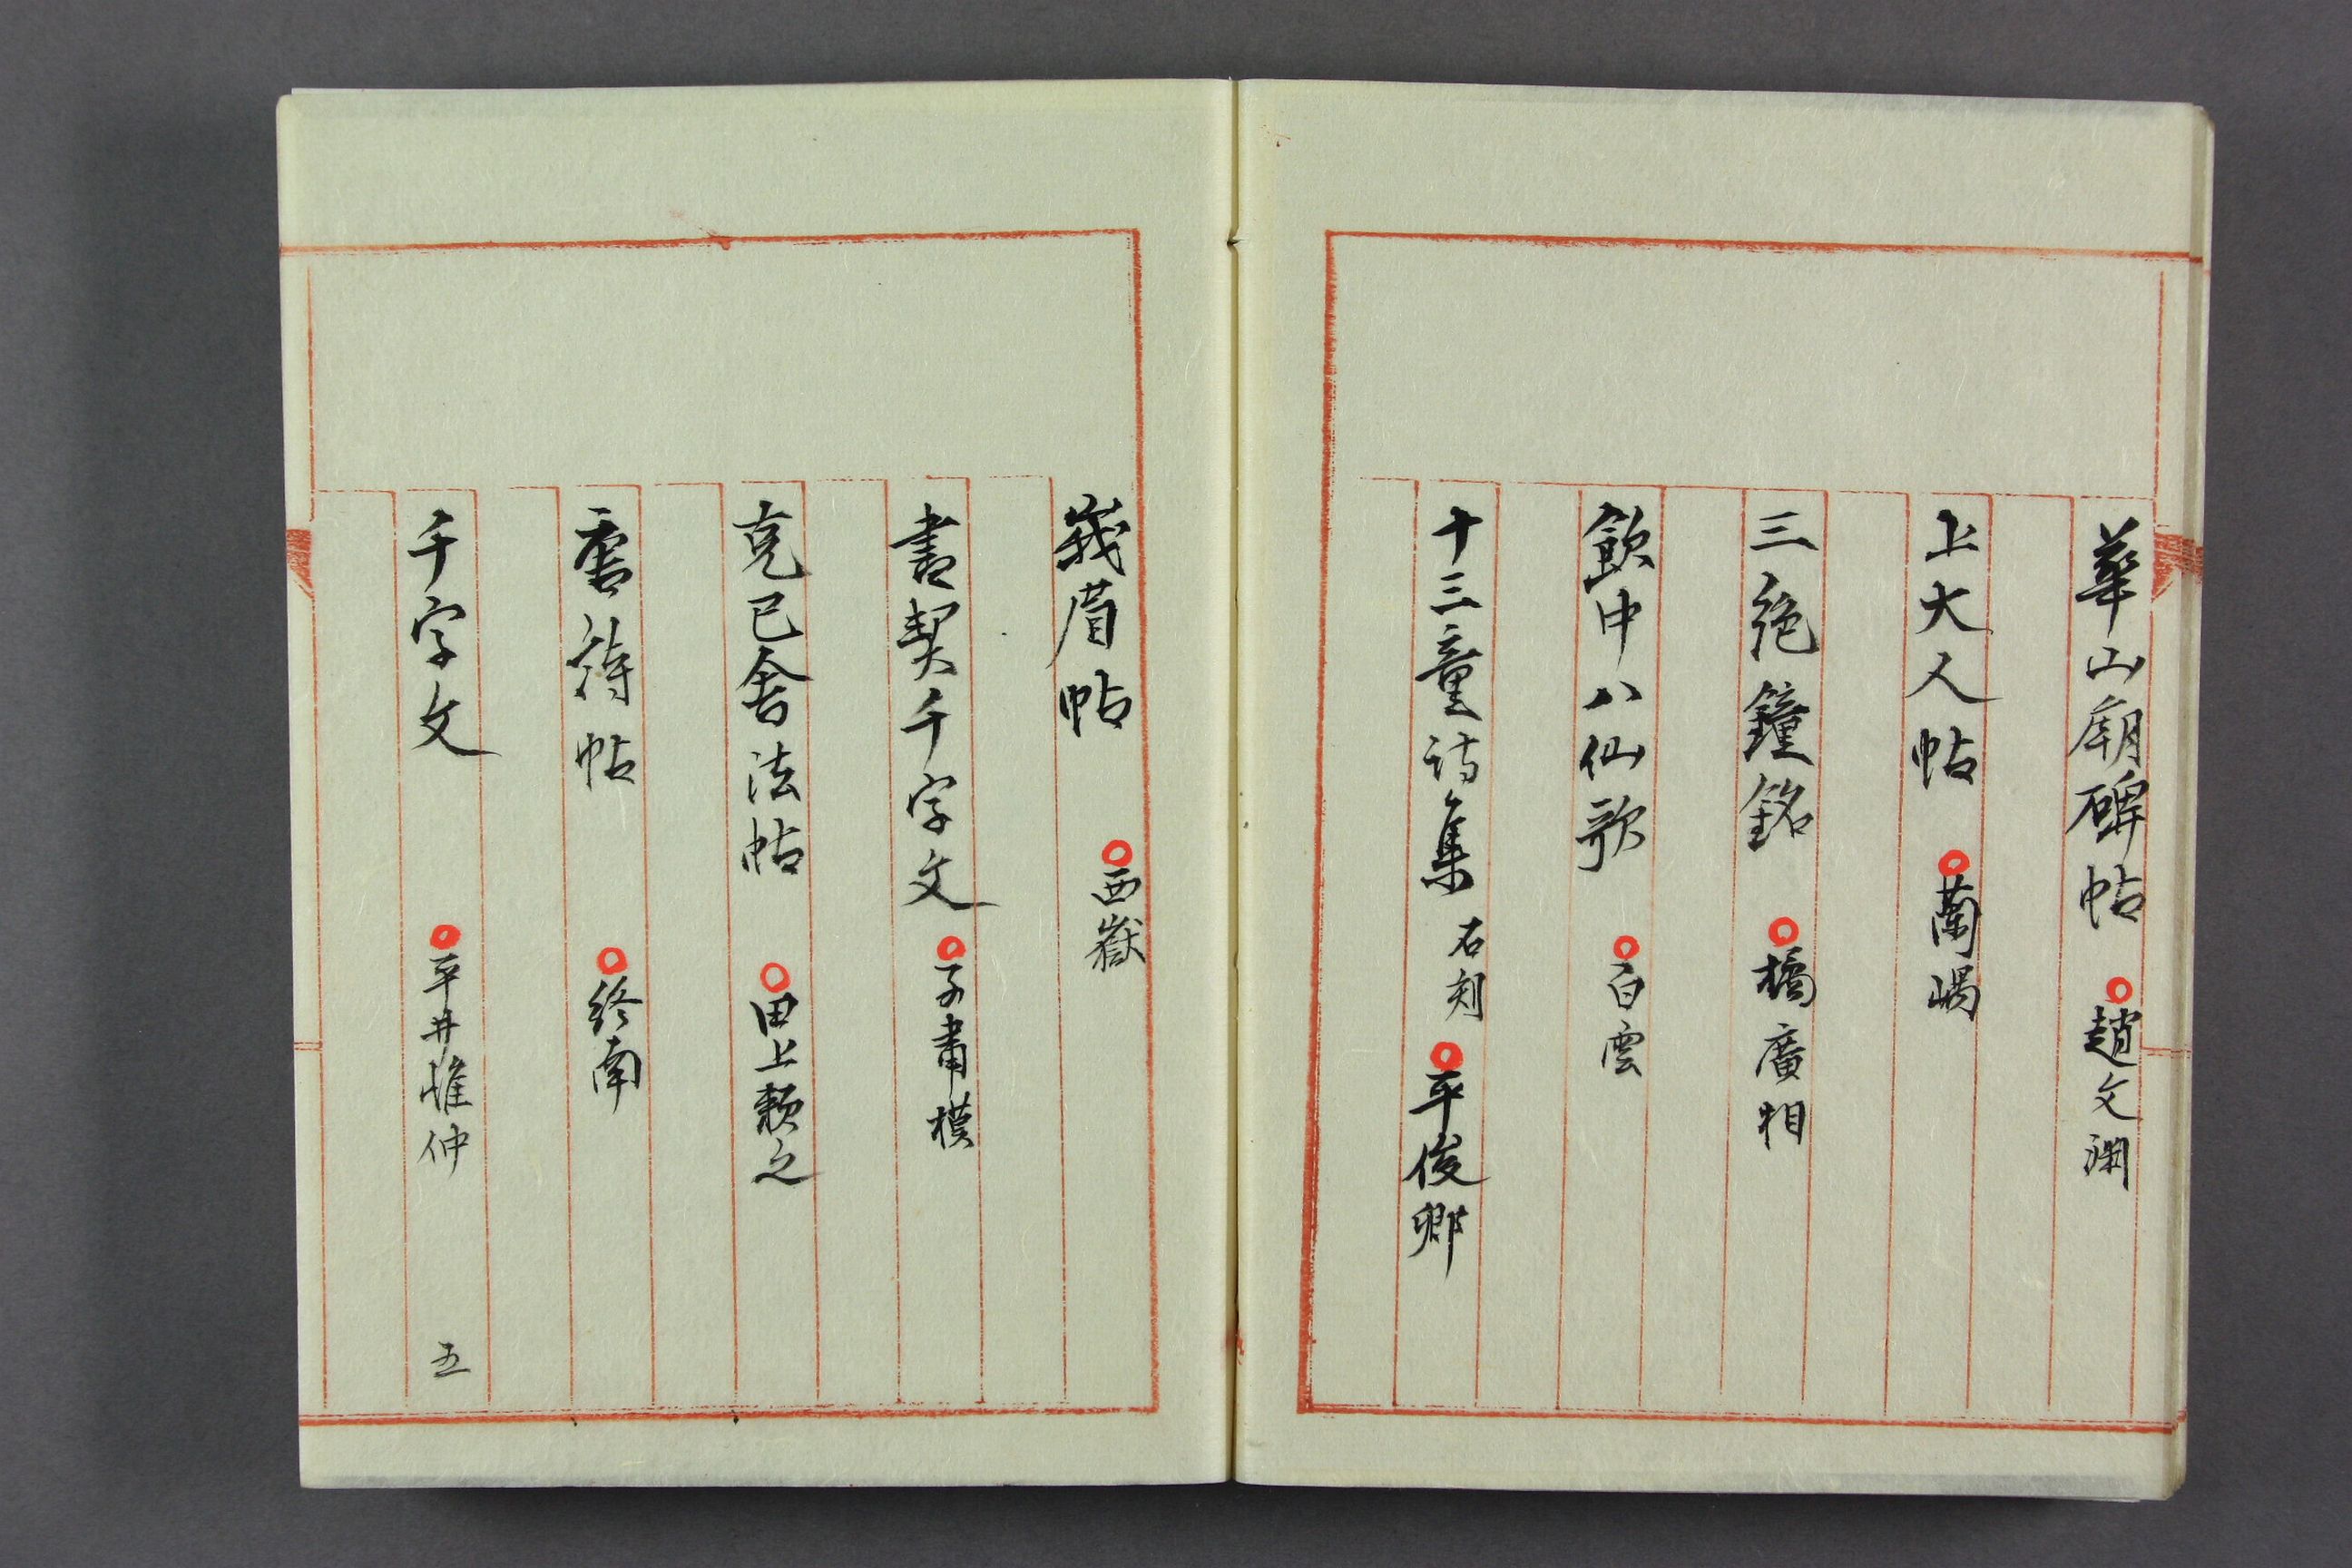 華山廟碑帖 ○趙文淵
上大人帖 ○蘭嵎
三絶鐘銘 ○橘廣相
飲中八仙歌 ○白雲
十三童詩集 石刻 ○平俊卿
峩眉帖 ○西嶽
書契千字文 ○子肅模
克己舍法帖 ○田上頼之
唐詩帖 ○終南
千字文 ○平井惟仲
五